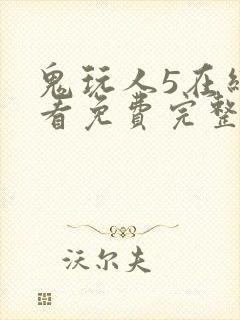 鬼玩人5在线
看免费完整
沃尔夫